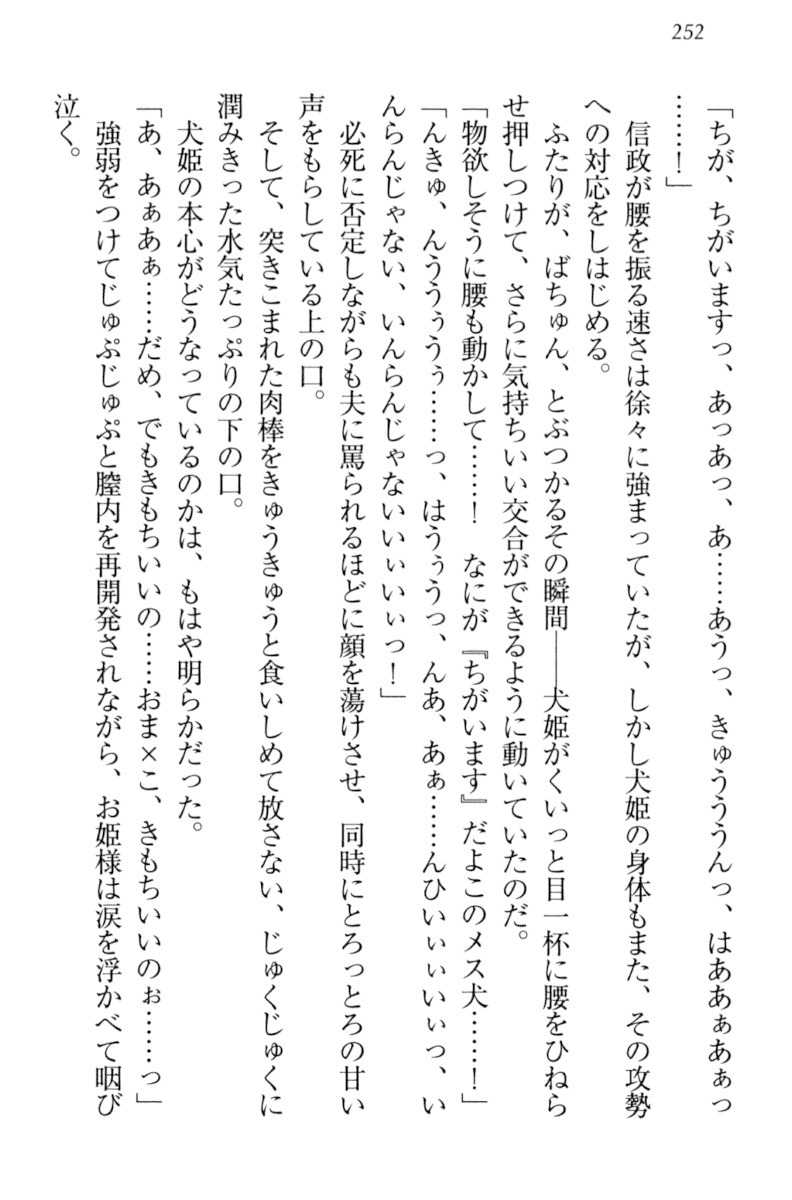 252
「ちが、ちがいますっ、あっあっ、あ……あうっ、きゅうううんっ、はああぁあぁっ
……！」
　信政が腰を振る速さは徐々に強まっていたが、しかし犬姫の身体もまた、その攻勢
への対応をしはじめる。
　ふたりが、ばちゅん、とぶつかるその瞬間――犬姫がくいっと目一杯に腰をひねら
せ押しつけて、さらに気持ちいい交合ができるように動いていたのだ。
「物欲しそうに腰も動かして……！　なにが『ちがいます』だよこのメス犬……！」
「んきゅ、んううぅうぅ……っ、はうぅうっ、んあ、あぁ……んひいぃぃいぃっ、い
んらんじゃない、いんらんじゃないいぃいぃっ！」
　必死に否定しながらも夫に罵られるほどに顔を蕩けさせ、同時にとろっとろの甘い
声をもらしている上の口。
　そして、突きこまれた肉棒をきゅうきゅうと食いしめて放さない、じゅくじゅくに
潤みきった水気たっぷりの下の口。
　犬姫の本心がどうなっているのかは、もはや明らかだった。
「あ、あぁあぁ……だめ、でもきもちいいの……おま×こ、きもちいいのぉ……っ」
　強弱をつけてじゅぷじゅぷと膣内を再開発されながら、お姫様は涙を浮かべて咽び
泣く。